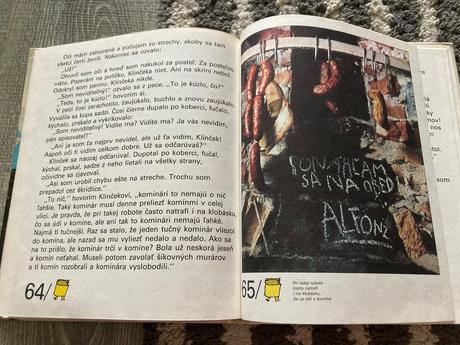 Oči mám zatvorené a počujem zo strechy, akoby sa tam
všetci čerti ženili. Nakoniec sa ozvalo:
„Už!"
Otvoril som oči a hneď som nakukol za posteľ. Za posteľou
nikto. Pozerám na poličku, Klinčeka niet. Ani na skrini nebol.
Odokryl som perinu, Klinčeka nikde.
„Som neviditeľný!" ozvalo sa z pece. „To je kúzlo, čo?"
„Teda, to je kúzlo!" hovorím si.
V peci čosi zarachotilo, zaujúkalo, buchlo a znovu zaujúkalo.
Vyvalila sa kopa sadzí. Čosi čierne dupalo po koberci, fučalo,
kýchalo, prskalo a vykrikovalo:
„Som neviditeľný! Vidíte ma? Vidíte ma? Ja vás nevidím,
som začarovaný!"
„Ani ja som ťa najprv nevidel, ale už ťa vidím, Klinček!
Aspoň oči ti vidím celkom dobre. Už sa odčarúvaš?"
Klinček sa naozaj odčarúval. Dupotal po koberci, fučal,
kýchal, prskal, sadze z neho lietali na všetky strany.
Očividne sa zjavoval.
„Asi som urobil chybu ešte na streche. Trochu som
prepadol cez škridlice."
„To nič," hovorím Klinčekovi, „kominári to nemajú o nič
ľahšie. Taký kominár musí denne preliezť komínmi v celej
ulici. Je pravda, že pri takej robote často natrafí i na klobásku,
čo sa údi v komíne, ale ani tak to kominári nemajú ľahké.
Najmä tí tučnejší. Raz sa stalo, že jeden tučný kominár vliezol
do komína, ale nazad sa mu vyliezť nedalo a nedalo. Ako sa
to prišlo, že kominár trčí v komíne? Bola už neskorá jeseň
a komín neťahal. Museli potom zavolať šikovných murárov
a tí komín rozobrali a kominára vyslobodili."
64/
PONÁHĽAM
SA NA OBED
ALFONZ
65/
Pri takej robote
často natrafí
i na klobásku,
čo sa údi v komíne